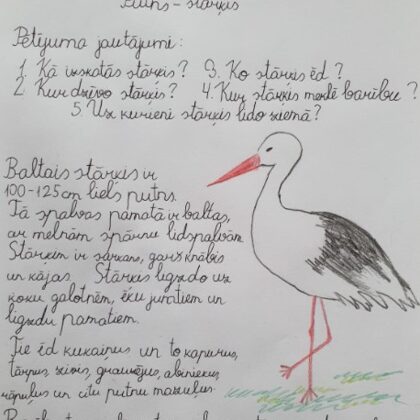 Putns - stārķis
Pētījuma jautājumi:
1. Kā izskatās stārķis? 3. Ko stārķis ēd?
2. Kur dzīvo stārķis? 4. Kur stārķis meklē barību?
5. Uz kurieni stārķis lido ziemā?
Baltais stārķis ir
100-125cm liels putns.
Tā spalvas pamatā ir baltas,
ar melnām spārnu lidspalvām.
Stārķim ir sarkans, garš knābis
un kājas. Stārķis ligzdo uz
koku galotnēm, ēku jumtiem un
ligzdu pamatiem.
Tie ēd kukaiņus un to kāpurus,
tārpus, zivis, grauzējus, abiniekus,
rāpuļus un citu putnu mazuļus.